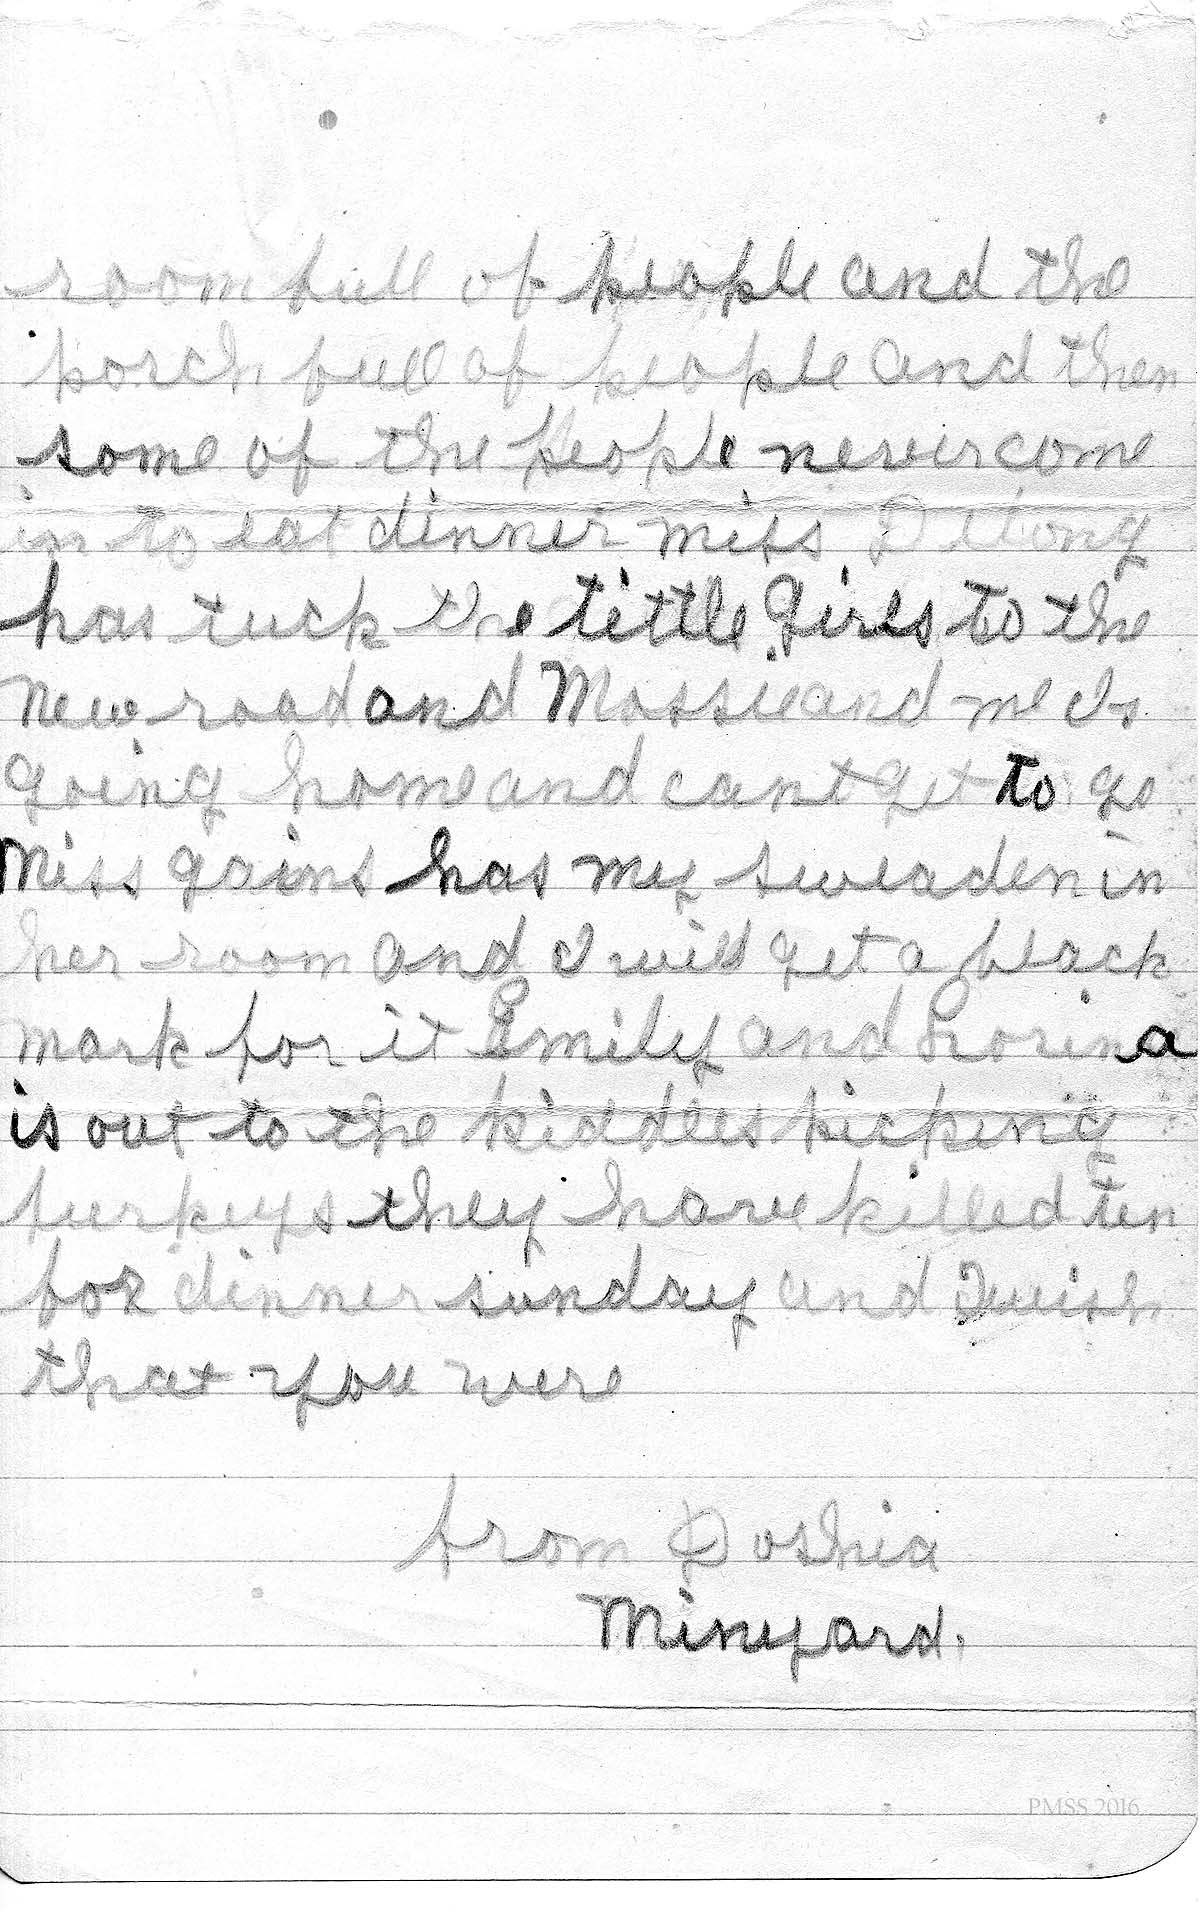 room full of people and the
porch full of people and then
some of the people never come
in to eat dinner miss Delong
has tuck the tittle girls to the
new road and Mossie and me is
going home and cant get to go
Miss gains has my sweaden in
her room and I will get a black
mark for it Emily and Lorina
is out to the kiddles picking
turkeys they have killed ten
for dinner sunday and I wish
that you were
from Doshia
Mineyard.
PMSS 2016